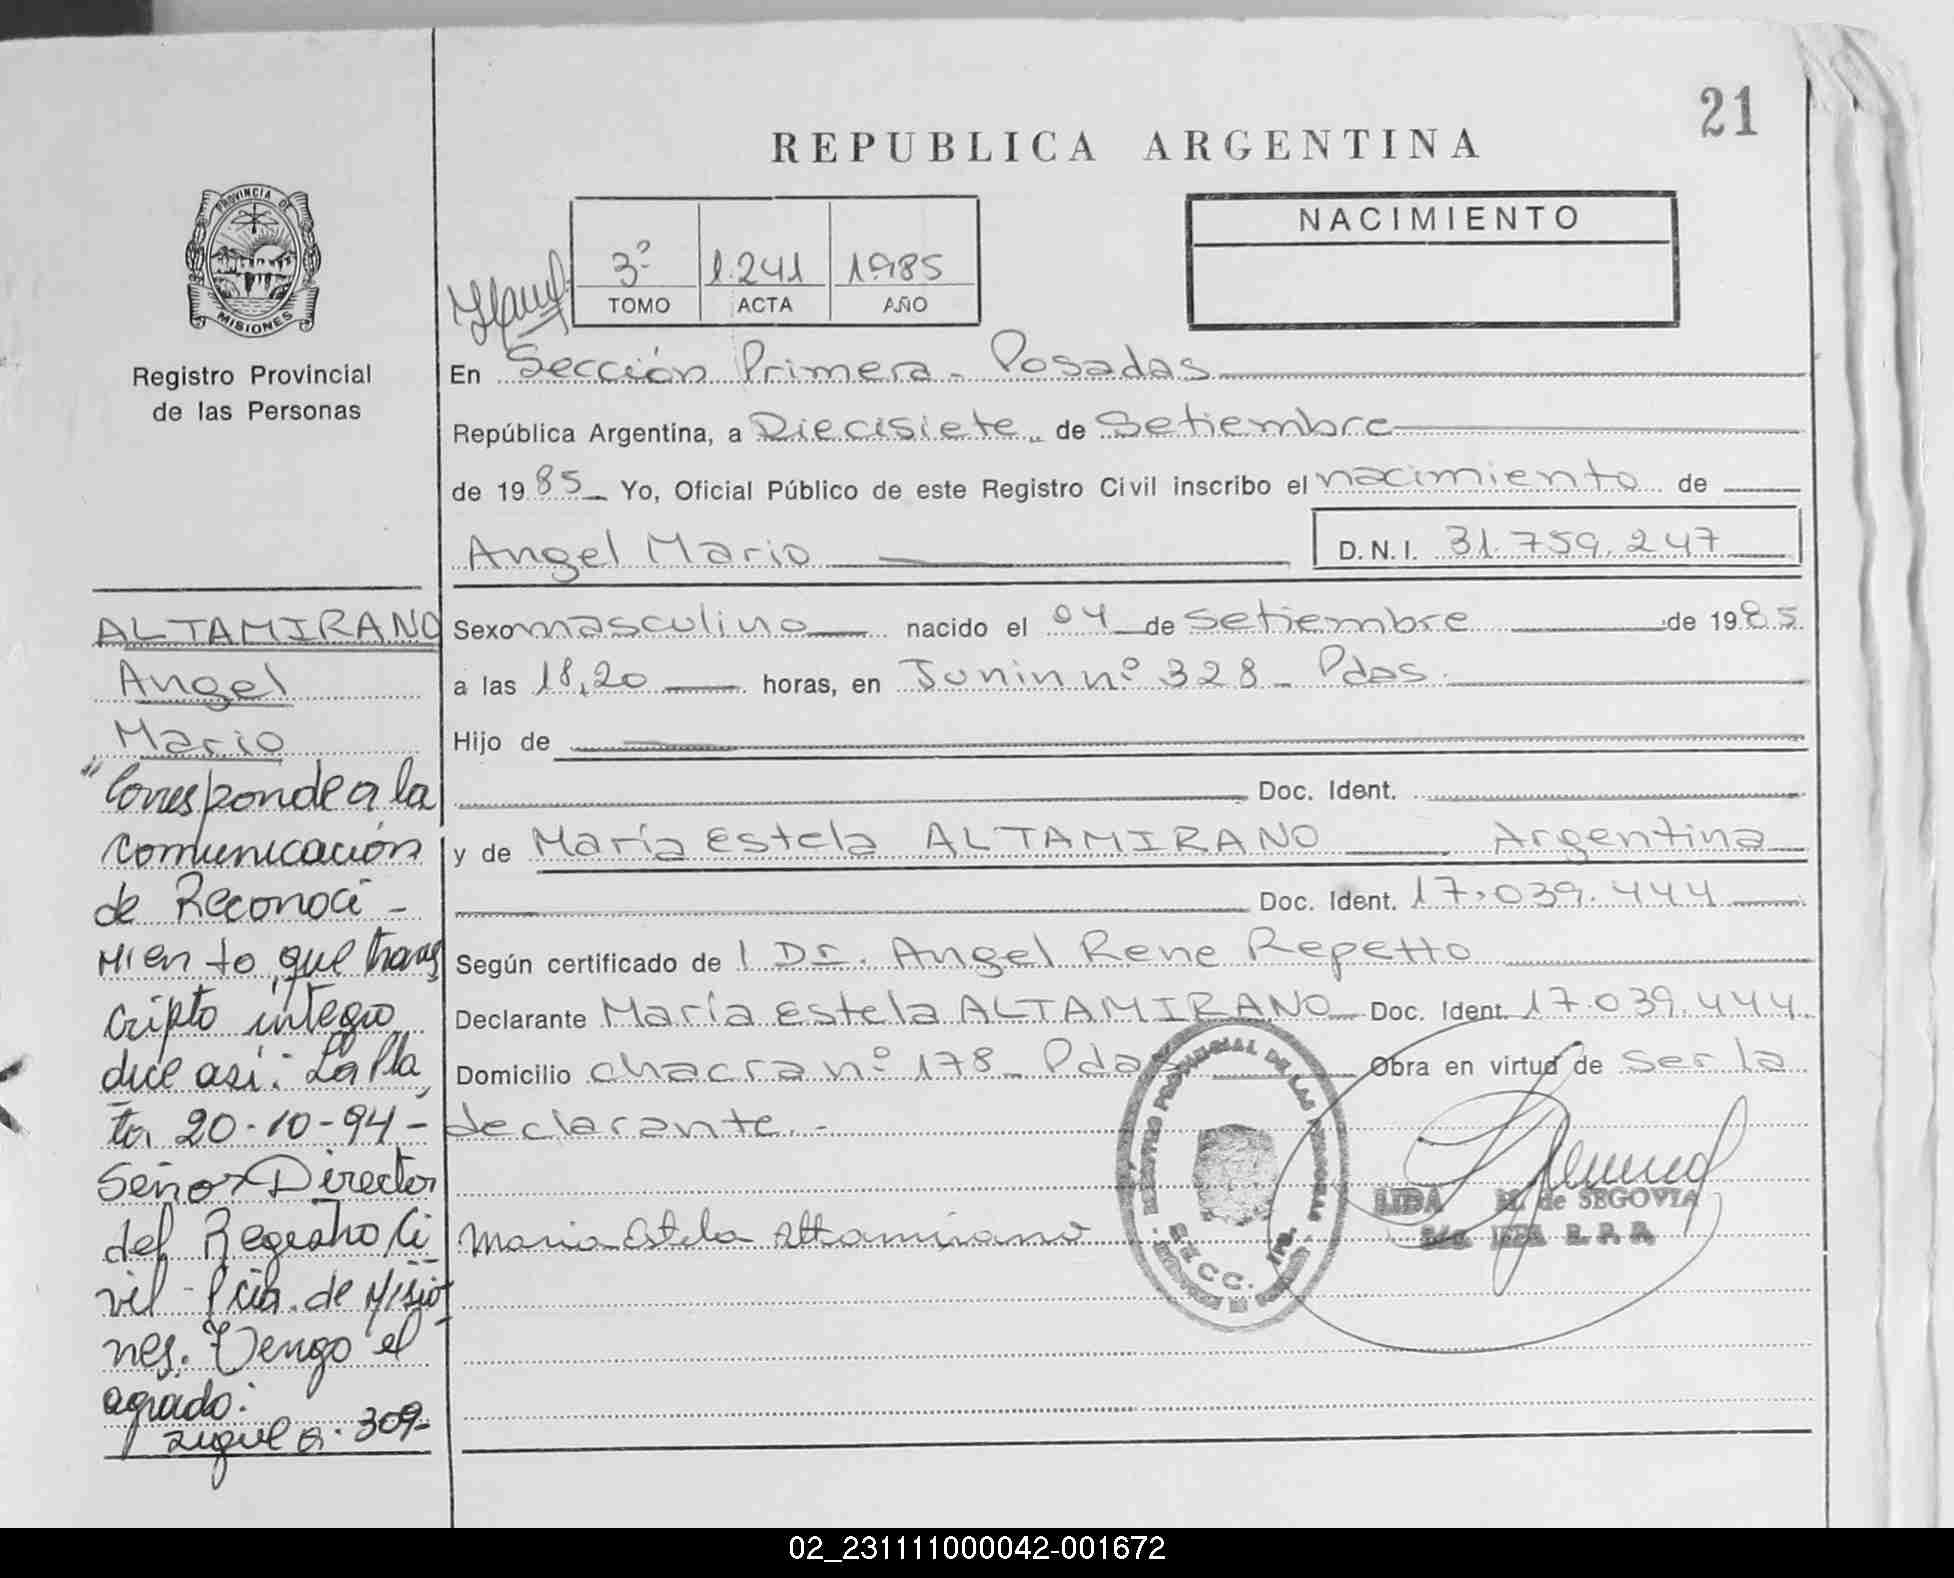 21
REPUBLICA ARGENTINA
PROVINCIA DE
MISIONES
Registro Provincial
de las Personas
3º 1.241 1985
TOMO ACTA AÑO
NACIMIENTO
En Sección Primera - Posadas
República Argentina, a Diecisiete de Setiembre
de 1985 Yo, Oficial Público de este Registro Civil inscribo el nacimiento de
Angel Mario D.N.I. 31.759.247
Sexo masculino nacido el 04 de Setiembre de 1985
a las 18,20 horas, en Junin nº 328 - Pdas.
Hijo de
Doc. Ident.
y de María Estela ALTAMIRANO Argentina
Doc. Ident. 17.039.444
Según certificado de l Dr. Angel Rene Repetto
Declarante María Estela ALTAMIRANO Doc. Ident. 17.039.444.
Domicilio chacra nº 178 - Pdas Obra en virtud de ser la
declarante.-
Maria Estela Altamirano
LIDA M. de SEGOVIA
ALTAMIRANO
Angel
Mario
"Corresponde a la
comunicación
de Reconoci-
miento que trans
cripto integro
dice asi: La Pla
ta, 20-10-94-
Señor Director
del Registro Ci
vil - Pcia. de Misio
nes. Tengo el
agrado:
sigue a. 309-
02_231111000042-001672